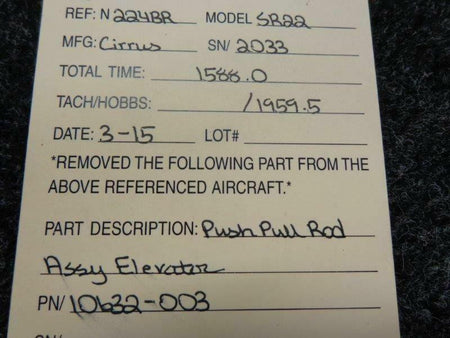 REF: N 224BR MODEL SR22
MFG: Cirrus SN/ 2033
TOTAL TIME: 1588.0
TACH/HOBBS: /1959.5
DATE: 3-15 LOT#
*REMOVED THE FOLLOWING PART FROM THE
ABOVE REFERENCED AIRCRAFT.*
PART DESCRIPTION: Push Pull Rod
Assy Elevator
PN/ 10632-003